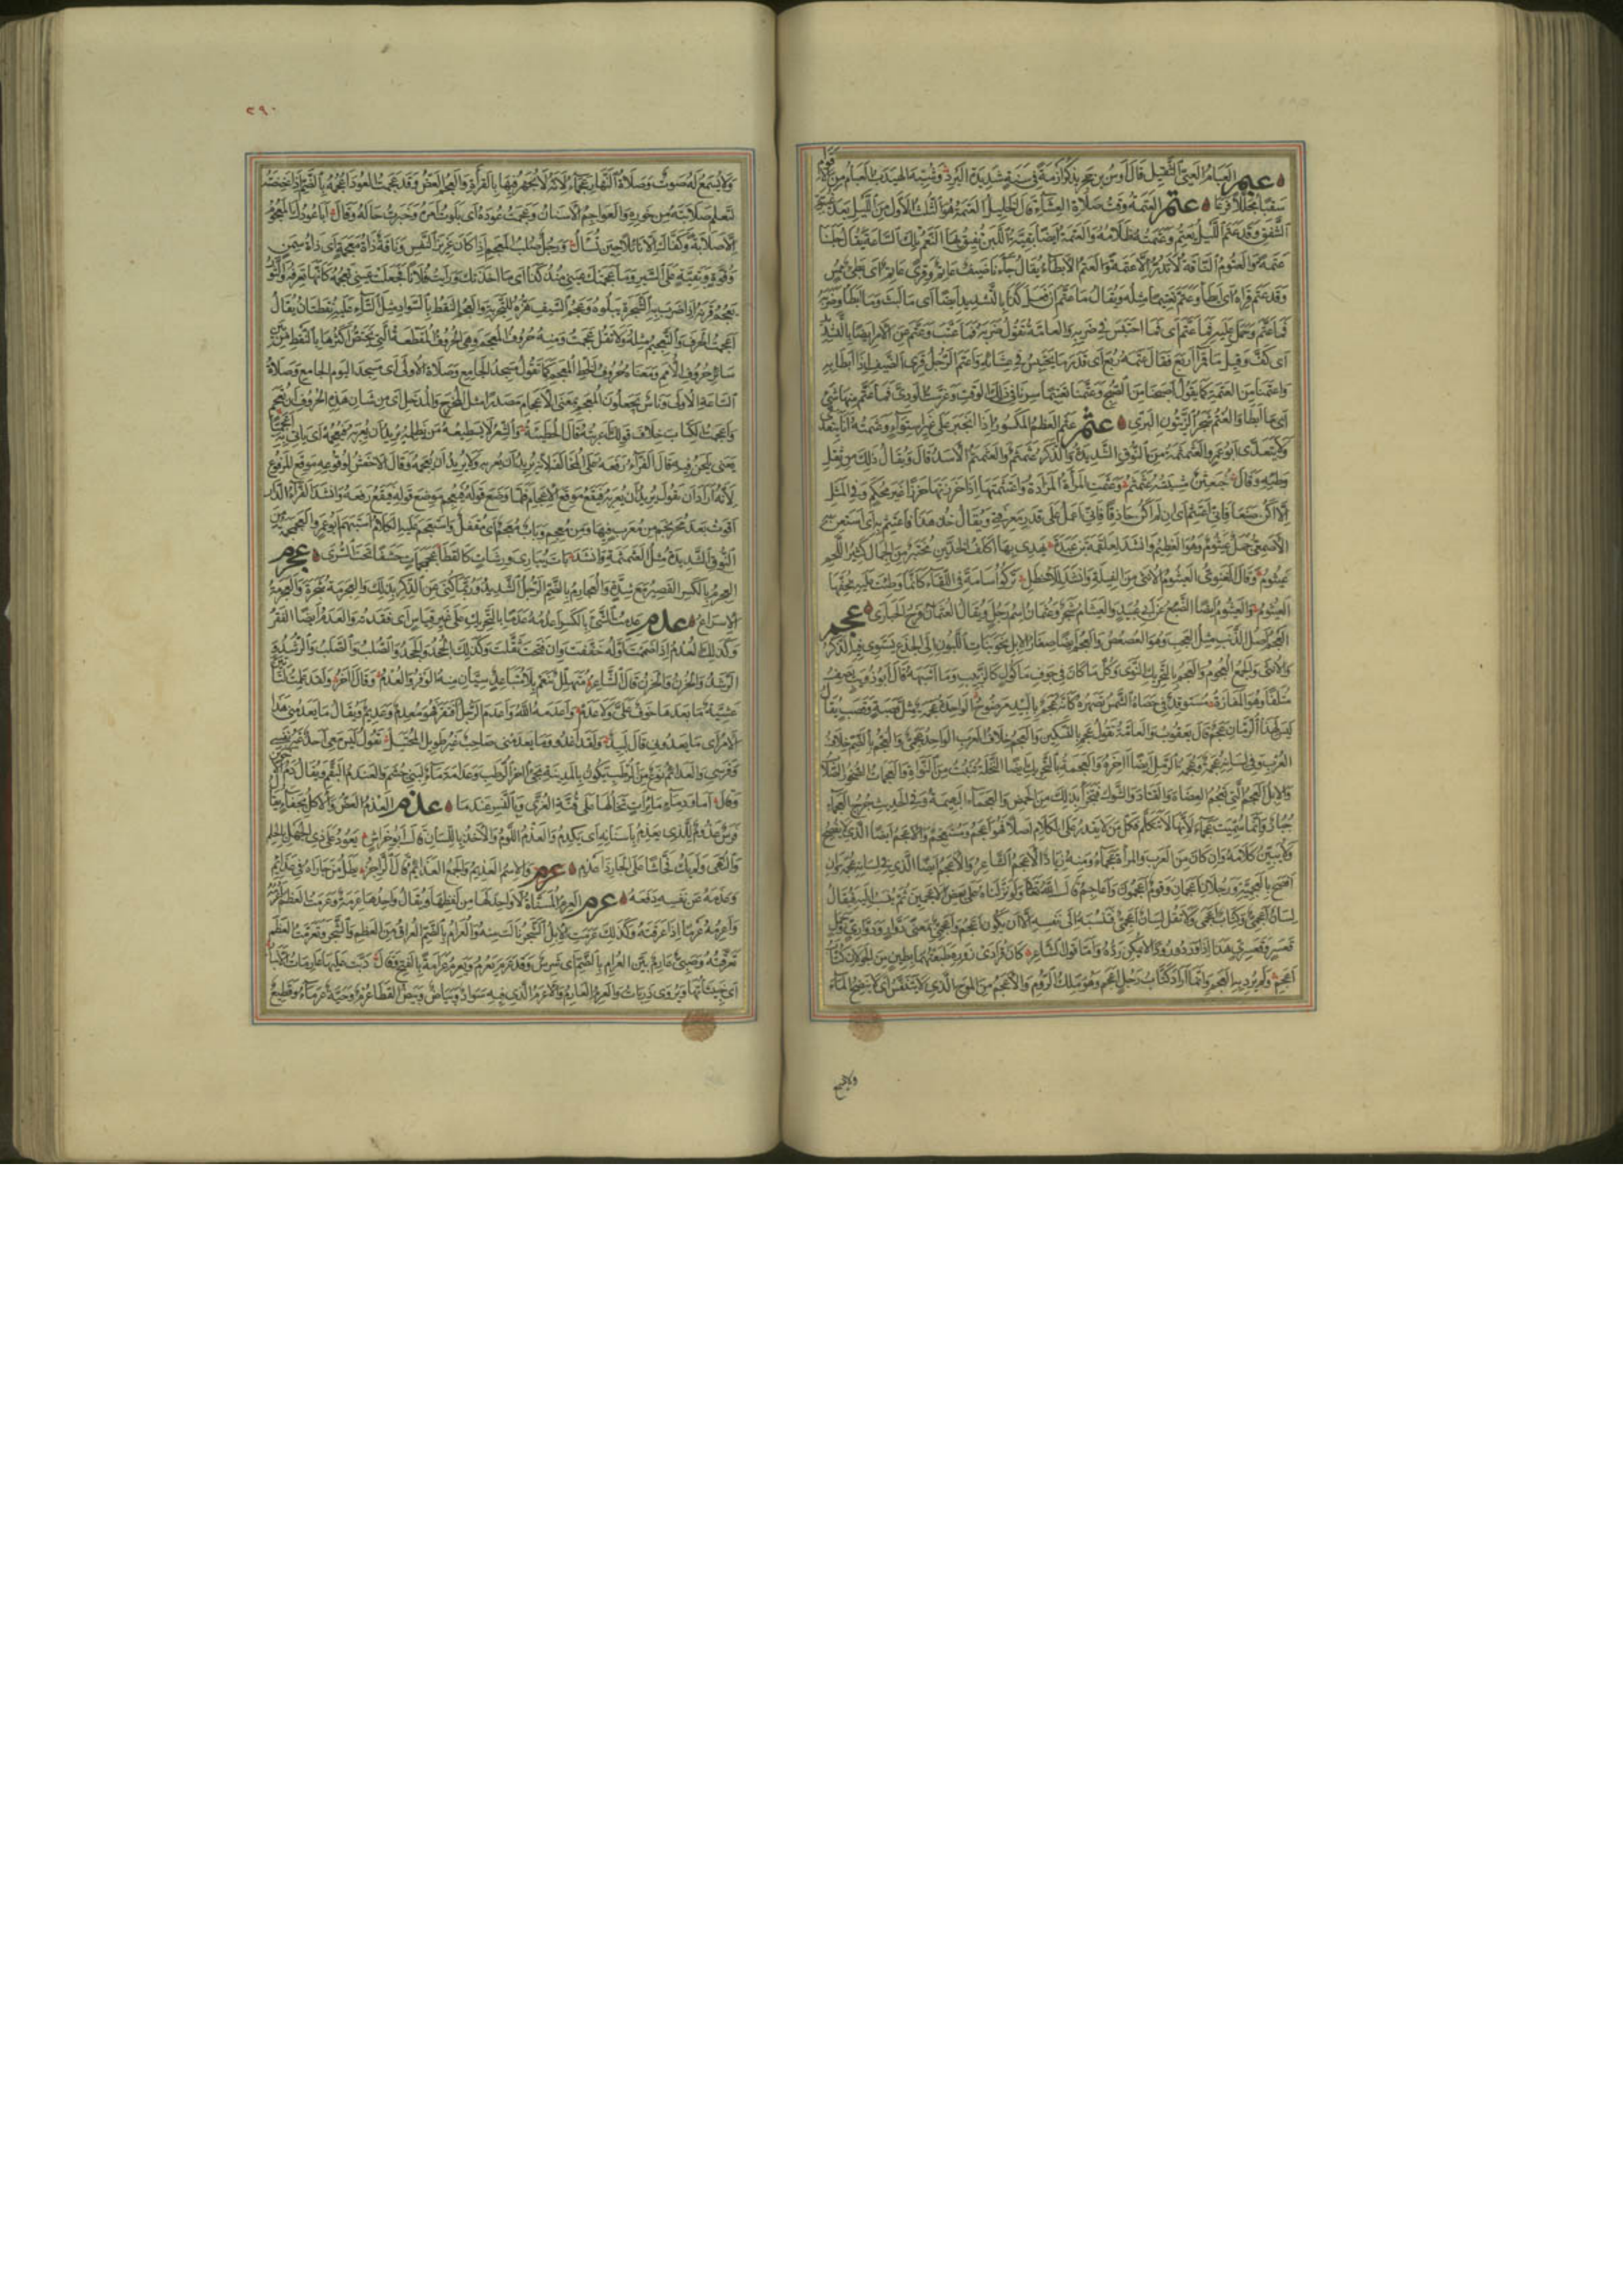 عبم العبام العيي الثقيل قال أوس بن حجر يذكر أزمة في سنة شديدة البرد وشبه الهيدب العبام من الأقوام
سقبا مجللا فرعا عتم العتمة وقت صلاة العشاء قال الخليل العتمة هو الثلث الأول من الليل بعد غيبوبة
الشفق وقد عتم الليل يعتم وعتمته ظلامه والعتمة أيضا بقية اللبن تفيق بها النعم تلك الساعة يقال حلبنا
عتمة والعتوم الناقة لا تدر إلا عتمة والعتم الإبطاء يقال جاءنا ضيف عاتم وقرى عاتم أي بطيء ممس
وقد عتم قراه أي أبطأ وعتم تعتيما مثله ويقال ما عتم أن فعل كذا بالتشديد أيضا أي ما لبث وما أبطأ وضربه
فما عتم وحمل عليه فما عتم أي فما احتبس في ضربه والعامة تقول ضربه فما عتب وعتم عن الأمر أيضا بالتشديد
أي كف وقيل ما قمراء أربع فقال عتمة ربع أي قدر ما يحتبس في عشائه وأعتم الرجل قرى الضيف إذا أبطأ به
وأعتمنا من العتمة كما يقول أصبحنا من الصبح وعتمنا تعتيما سرنا في ذلك الوقت وغرست الودي فما عتم منها شيء
أي ما أبطأ والعتم شجر الزيتون البري عثم عثم العظم المكسور إذا انجبر على غير استواء وعثمته أنا يتعدى
ولا يتعدى أبو عمرو العثمثمة من النوق الشديدة والذكر عثمثم والعثمثم الأسد قال ويقال ذلك من ثقل
وطئه وقال خبعثن مشيته عثمثم وعثمت المرأة المزادة واعتثمتها إذا خرزتها خرزا غير محكم وفي المثل
إلا أكن صنعا فإني أعتثم أي إن لم أكن حاذقا فإني أعمل على قدر معرفتي ويقال خذ هذا فاعتثم به أي استعن به
الأصمعي جمل عيثوم وهو العظيم وأنشد لعلقمة بن عبدة يهدي بها أكلف الخدين مختبر من الجمال كثير اللحم
عيثوم وقال الغنوي العيثوم الأنثى من الفيلة وأنشد للأخطل تركوا أسامة في اللقاء كأنما وطئت عليه بخفها
العيثوم والعيثوم أيضا الضبع عن أبي عبيد والعيثام شجر وعثمان اسم رجل ويقال العثمان فرخ الحبارى عجم
العجم أصل الذنب مثل العجب وهو العصعص والعجم أيضا صغار الإبل نحو بنات اللبون إلى الجذع يستوي فيه الذكر
والأنثى والجمع العجوم والعجم بالتحريك النوى وكل ما كان في جوف مأكول كالزبيب وما أشبهه قال أبو ذؤيب يصف
متلفا وهو المفازة مستوقد في حصاه الشمس تصهره كأنه عجم بالبيد مرضوخ الواحدة عجمة مثل قصبة وقصب يقال
ليس لهذا الرمان عجم قال يعقوب والعامة تقول عجم بالتسكين والعجم خلاف العرب الواحد عجمي والعجم بالضم خلاف
العرب وفي لسانه عجمة وعجمة الرمل أيضا آخره والعجمة بالتحريك أيضا النخلة تنبت من النواة والعجمات الصخور الصلاب
والإبل العجم التي تعجم العضاه والقتاد والشوك فتجزأ بذلك من الحمض والعجماء البهيمة وفي الحديث جرح العجماء
جبار وإنما سميت عجماء لأنها لا تتكلم فكل من لا يقدر على الكلام أصلا فهو أعجم ومستعجم والأعجم أيضا الذي لا يفصح
ولا يبين كلامه وإن كان من العرب والمرأة عجماء ومنه زياد الأعجم الشاعر والأعجم أيضا الذي في لسانه عجمة وإن
أفصح بالعجمية ورجلان أعجمان وقوم أعجمون وأعاجم قال الله تعالى ولو نزلناه على بعض الأعجمين ثم ينسب إليه فيقال
لسان أعجمي وكتاب أعجمي ولا تقل رجل أعجمي فتنسبه إلى نفسه إلا أن يكون أعجم وأعجمي بمعنى مثل دوار ودواري وجمل
قعسر وقعسري هذا إذا ورد ورودا لا يمكن رده وأما قول الشاعر كأن قرادي زوره طبعتهما بطين من الجولان كتاب
أعجم ولم يرد به العجم وإنما أراد كتاب رجل أعجم وهو ملك الروم والأعجم من الموج الذي لا يتنفس أي لا ينضح الماء
ولا يسمع
٢٩٠
ولا يسمع له صوت وصلاة النهار عجماء لأنه لا يجهر فيها بالقراءة والعجم العض وقد عجمت العود أعجمه بالضم إذا عضضته
لتعلم صلابته من خوره والعواجم الأسنان وعجمت عوده أي بلوت أمره وخبرت حاله وقال أبا عودك المعجوم
إلا صلابة وكفاك إلا نائلا حين تسأل ورجل صلب المعجم إذا كان عزيز النفس وناقة ذات معجمة أي ذات سمن
وقوة وبقية على السير وما عجمتك عيني منذ كذا أي ما أخذتك ورأيت فلانا فجعلت عيني تعجمه كأنها تعرفه والثور
يعجم قرنه إذا ضرب به الشجرة يبلوه وعجم السيف هزه للتجربة والعجم النقط بالسواد مثل التاء عليه نقطتان يقال
أعجمت الحرف والتعجيم مثله ولا تقل عجمت ومنه حروف المعجم وهي الحروف المقطعة التي يختص أكثرها بالنقط من بين
سائر حروف الأمم ومعناه حروف الخط المعجم كما تقول مسجد الجامع وصلاة الأولى أي مسجد اليوم الجامع وصلاة
الساعة الأولى وناس يجعلون المعجم بمعنى الإعجام مصدرا مثل المخرج والمدخل أي من شأن هذه الحروف أن تعجم
وأعجمت الكتاب خلاف قولك أعربته قال الحطيئة والشعر لا يسطيعه من يظلمه يريد أن يعربه فيعجمه أي يأتي به أعجميا
يعني يلحن فيه قال الفراء رفعه على المخالفة لأنه يريد أن يعربه ولا يريد أن يعجمه وقال الأخفش لوقوعه موقع المرفوع
لأنه أراد أن يقول يريد أن يعربه فيقع موقع الإعجام فلما وضع قوله فيعجمه موضع قوله فيقع رفعه وأنشد الفراء الدار
أقوت بعد محرنجم من معرب فيها ومن معجم وباب معجم أي مقفل واستعجم عليه الكلام استبهم أبو عمرو العجمجمة من
النوق الشديدة مثل العثمثمة وأنشد بات يباري ورشات كالقطا عجمجمات خشفا تحت السرى عجرم
العجرم بالكسر القصير مع شدة والعجارم بالضم الرجل الشديد وربما كني عن الذكر بذلك والعجرمة شجرة والعجرمة
الإسراع عدم عدمت الشيء بالكسر أعدمه عدما بالتحريك على غير قياس أي فقدته والعدم أيضا الفقر
وكذلك العدم إذا ضممت أوله خففت وإن فتحت ثقلت وكذلك الجحد والجحد والصلب والصلب والرشد و
الرشد والحزن والحزن قال الشاعر متهلل بنعم بلا متباعد سيان منه الوفر والعدم وقال آخر ولقد علمت لتأتين
عشية ما بعدها خوف علي ولا عدم وأعدمه الله وأعدم الرجل افتقر فهو معدم وعديم ويقال ما يعدمني هذا
الأمر أي ما يعدوني قال لبيد ولقد أغدو وما يعدمني صاحب غير طويل المحتبل تقول ليس معي أحد غير نفسي
وفرسي والعدائم نوع من الرطب يكون بالمدينة يجيء آخر الرطب وعدامة ماء لبني جشم والعندم البقم ويقال دم الأخوين
وقال أما ودماء مائرات تخالها على قنة العزى وبالنسر عندما عذم العذم العض والأكل بجفاء يقال
فرس عذوم للذي يعذم بأسنانه أي يكدم والعذم اللوم والأخذ باللسان قال أبو خراش يعود على ذي الجهل بالحلم
والنهى ولم يك فحاشا على الجار ذا عذم والاسم العذيمة والجمع العذائم قال الراجز يظل من جاراه في عذائم
وعذمه عن نفسه دفعه عرم العرم المسناة لا واحد لها من لفظها ويقال واحدها عرمة وعرمت العظم أعرمه
وأعرمه عرما إذا عرقته وكذلك عرمت الإبل الشجر نالت منه والعرام بالضم العراق من العظم والشجر وتعرمت العظم
تعرقته وصبي عارم بين العرام بالضم أي شرس وقد عرم يعرم ويعرم عرامة بالفتح وقال دبت عليها عارمات الأنبار
أي خبيثاتها ويروى ذربات والعرم العارم والأعرم الذي فيه سواد وبياض وبيض القطا عرم وحية عرماء وقطيع